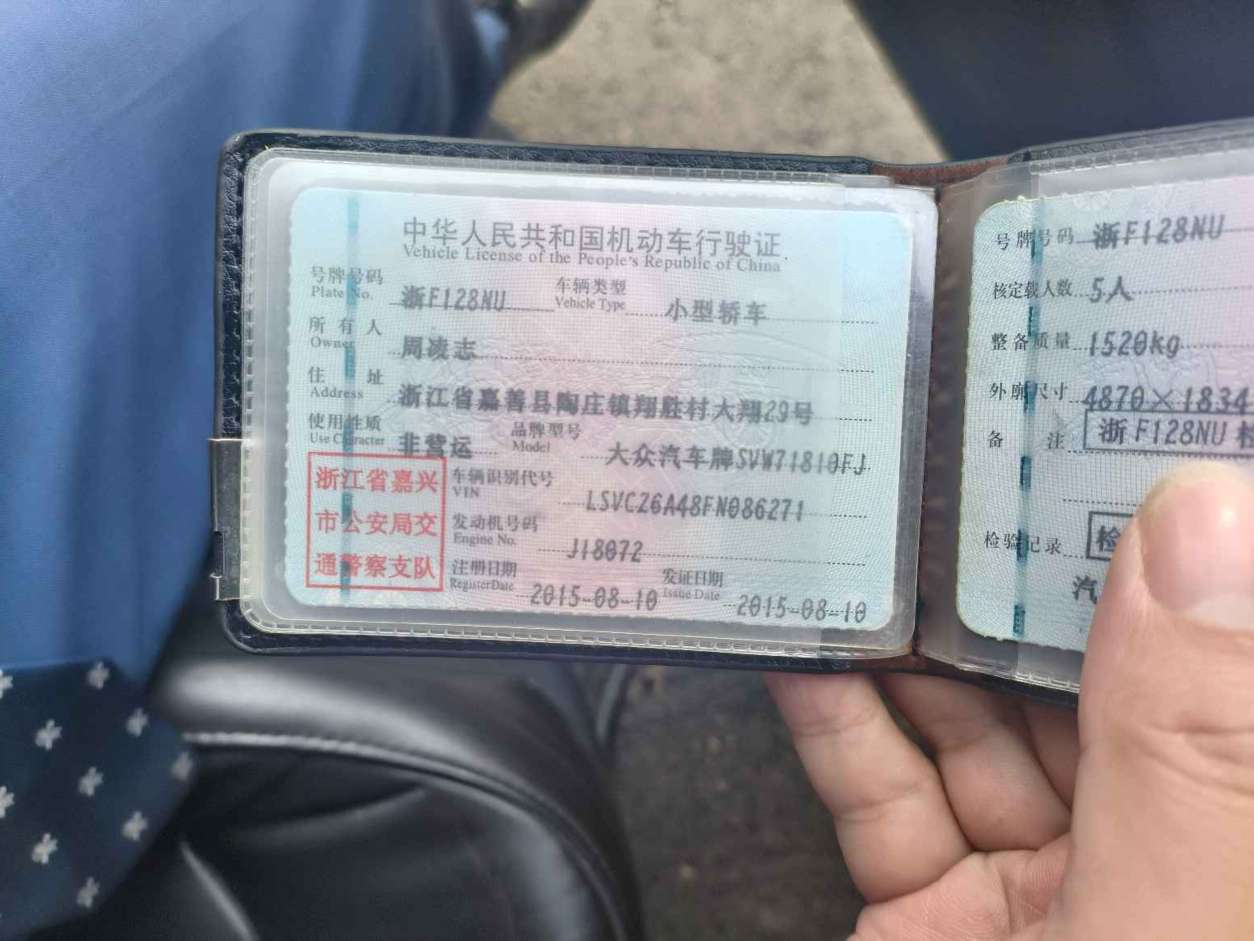 中华人民共和国机动车行驶证
Vehicle License of the People's Republic of China
号牌号码 浙F128NU 车辆类型 小型轿车
Plate No. Vehicle Type
所有人 周凌志
Owner
住址 浙江省嘉善县陶庄镇翔胜村大翔29号
Address
使用性质 非营运 品牌型号 大众汽车牌SVW71810FJ
Use Character Model
浙江省嘉兴
市公安局交
通警察支队
车辆识别代号 LSVCZ6A48FN086271
VIN
发动机号码 J18072
Engine No.
注册日期 2015-08-10 发证日期 2015-08-10
Register Date Issue Date
号牌号码 浙F128NU
核定载人数 5人
整备质量 1520kg
外廓尺寸 4870×1834
备注 浙F128NU 检
检验记录 检
汽